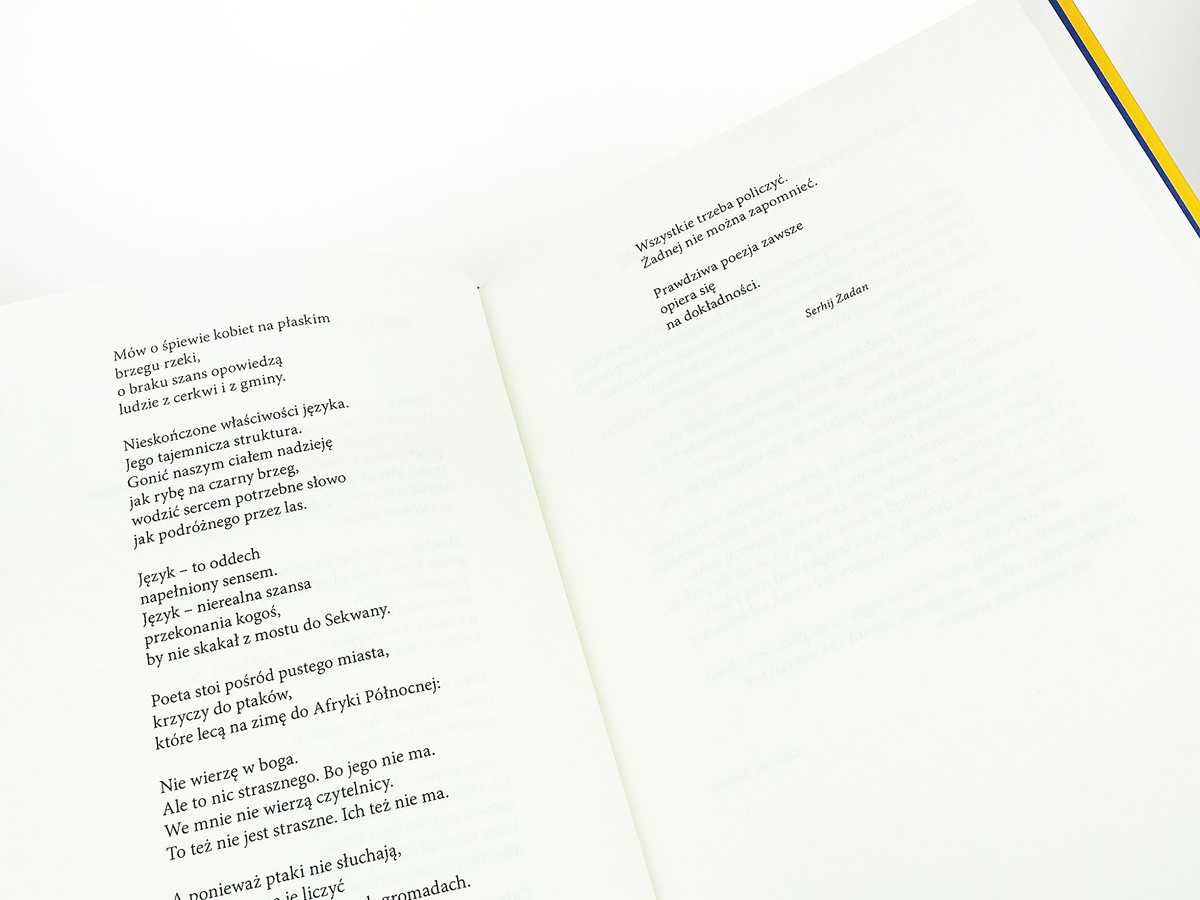 Mów o śpiewie kobiet na płaskim
brzegu rzeki,
o braku szans opowiedzą
ludzie z cerkwi i z gminy.
Nieskończone właściwości języka.
Jego tajemnicza struktura.
Gonić naszym ciałem nadzieję
jak rybę na czarny brzeg,
wodzić sercem potrzebne słowo
jak podróżnego przez las.
Język – to oddech
napełniony sensem.
Język – nierealna szansa
przekonania kogoś,
by nie skakał z mostu do Sekwany.
Poeta stoi pośród pustego miasta,
krzyczy do ptaków,
które lecą na zimę do Afryki Północnej:
Nie wierzę w boga.
Ale to nic strasznego. Bo jego nie ma.
We mnie nie wierzą czytelnicy.
To też nie jest straszne. Ich też nie ma.
A ponieważ ptaki nie słuchają,
je liczyć
gromadach.
Wszystkie trzeba policzyć.
Żadnej nie można zapomnieć.
Prawdziwa poezja zawsze
opiera się
na dokładności.
Serhij Żadan